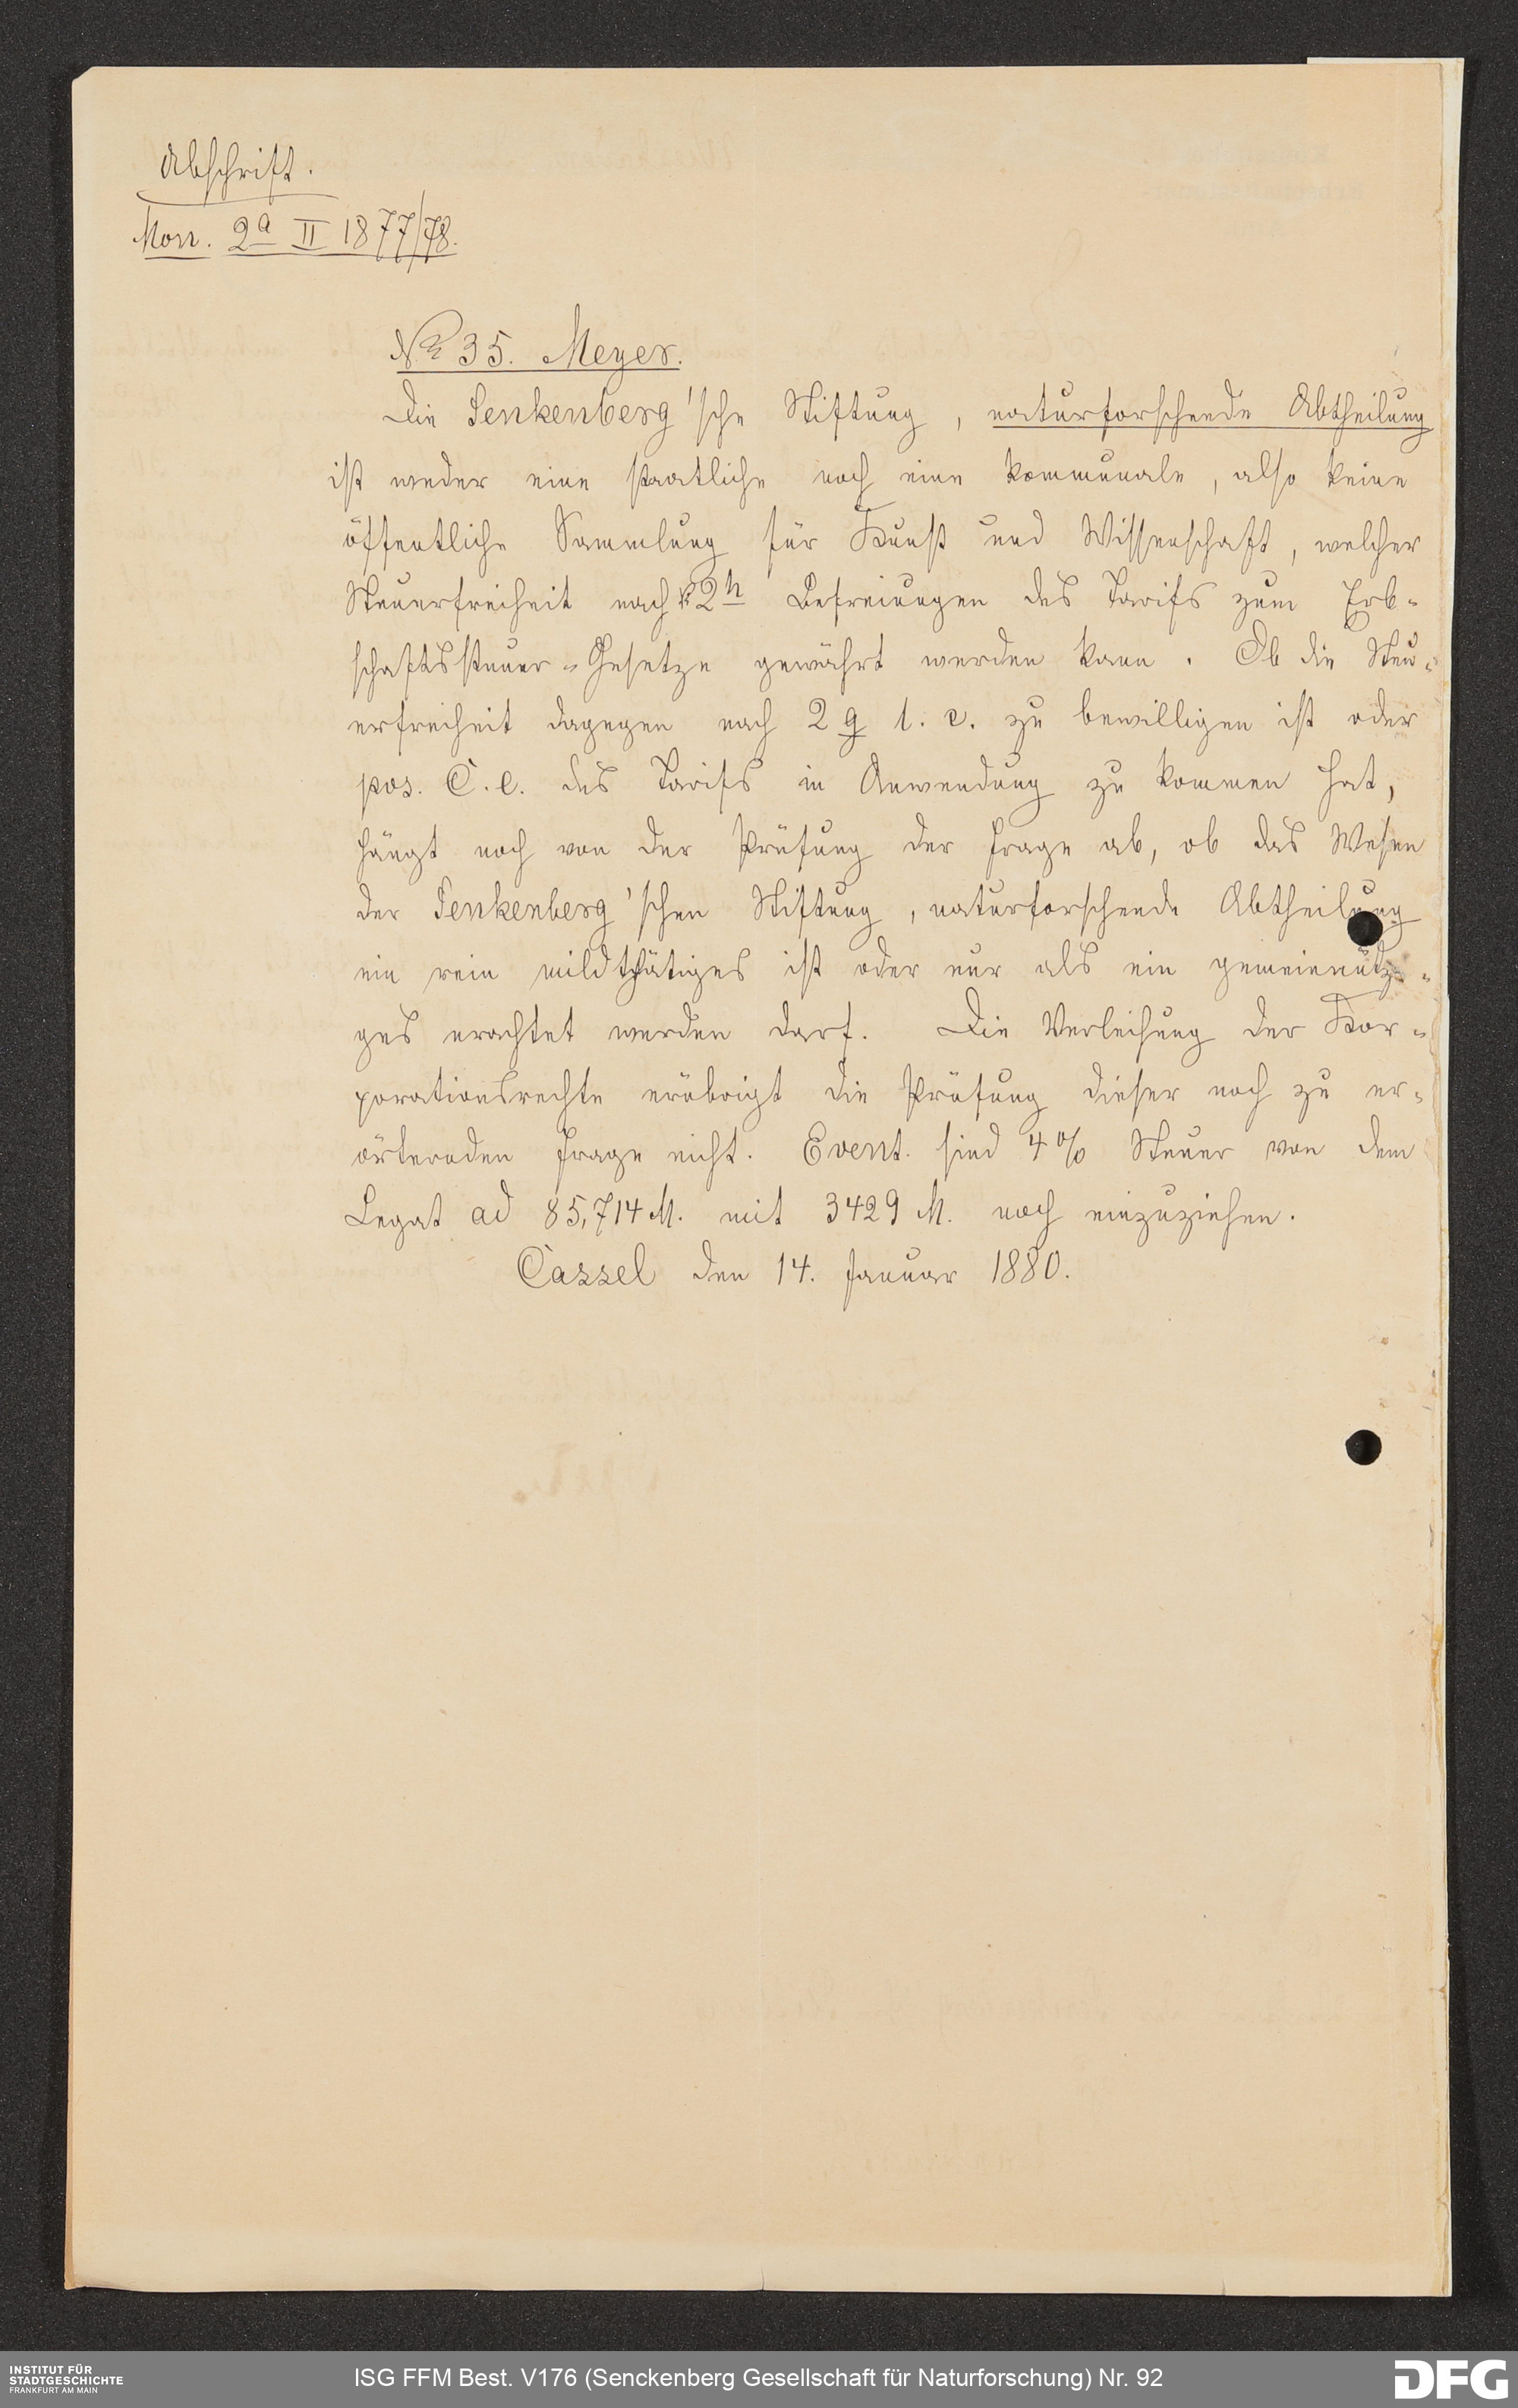 Abschrift.
Mon. 2a II 1877/78.
No 35. Meyer.
Die Senkenberg'sche Stiftung, naturforschende Abtheilung
ist weder eine staatliche noch eine kommunale, also keine
öffentliche Sammlung für Kunst und Wissenschaft, welcher
Steuerfreiheit nach 2h Befreiungen des Tarifs zum Erb-
schaftssteuer-Gesetze gewährt werden kann. Ob die Steu-
erfreiheit dagegen nach 2 g l. c. zu bewilligen ist oder
pos. C. e. des Tarifs in Anwendung zu kommen hat,
hängt noch von der Prüfung der Frage ab, ob das Wesen
der Senkenberg'schen Stiftung, naturforschende Abtheilung
ein rein mildthätiges ist oder nur als ein gemeinnützi-
ges erachtet werden darf. Die Verleihung der Kor-
porationsrechte erübrigt die Prüfung dieser noch zu er-
örternden Frage nicht. Event. sind 4% Steuer von dem
Legat ad 85,714 M. mit 3429 M. noch einzuziehen.
Cassel den 14. Januar 1880.
INSTITUT FÜR
STADTGESCHICHTE
FRANKFURT AM MAIN
ISG FFM Best. V176 (Senckenberg Gesellschaft für Naturforschung) Nr. 92
DFG